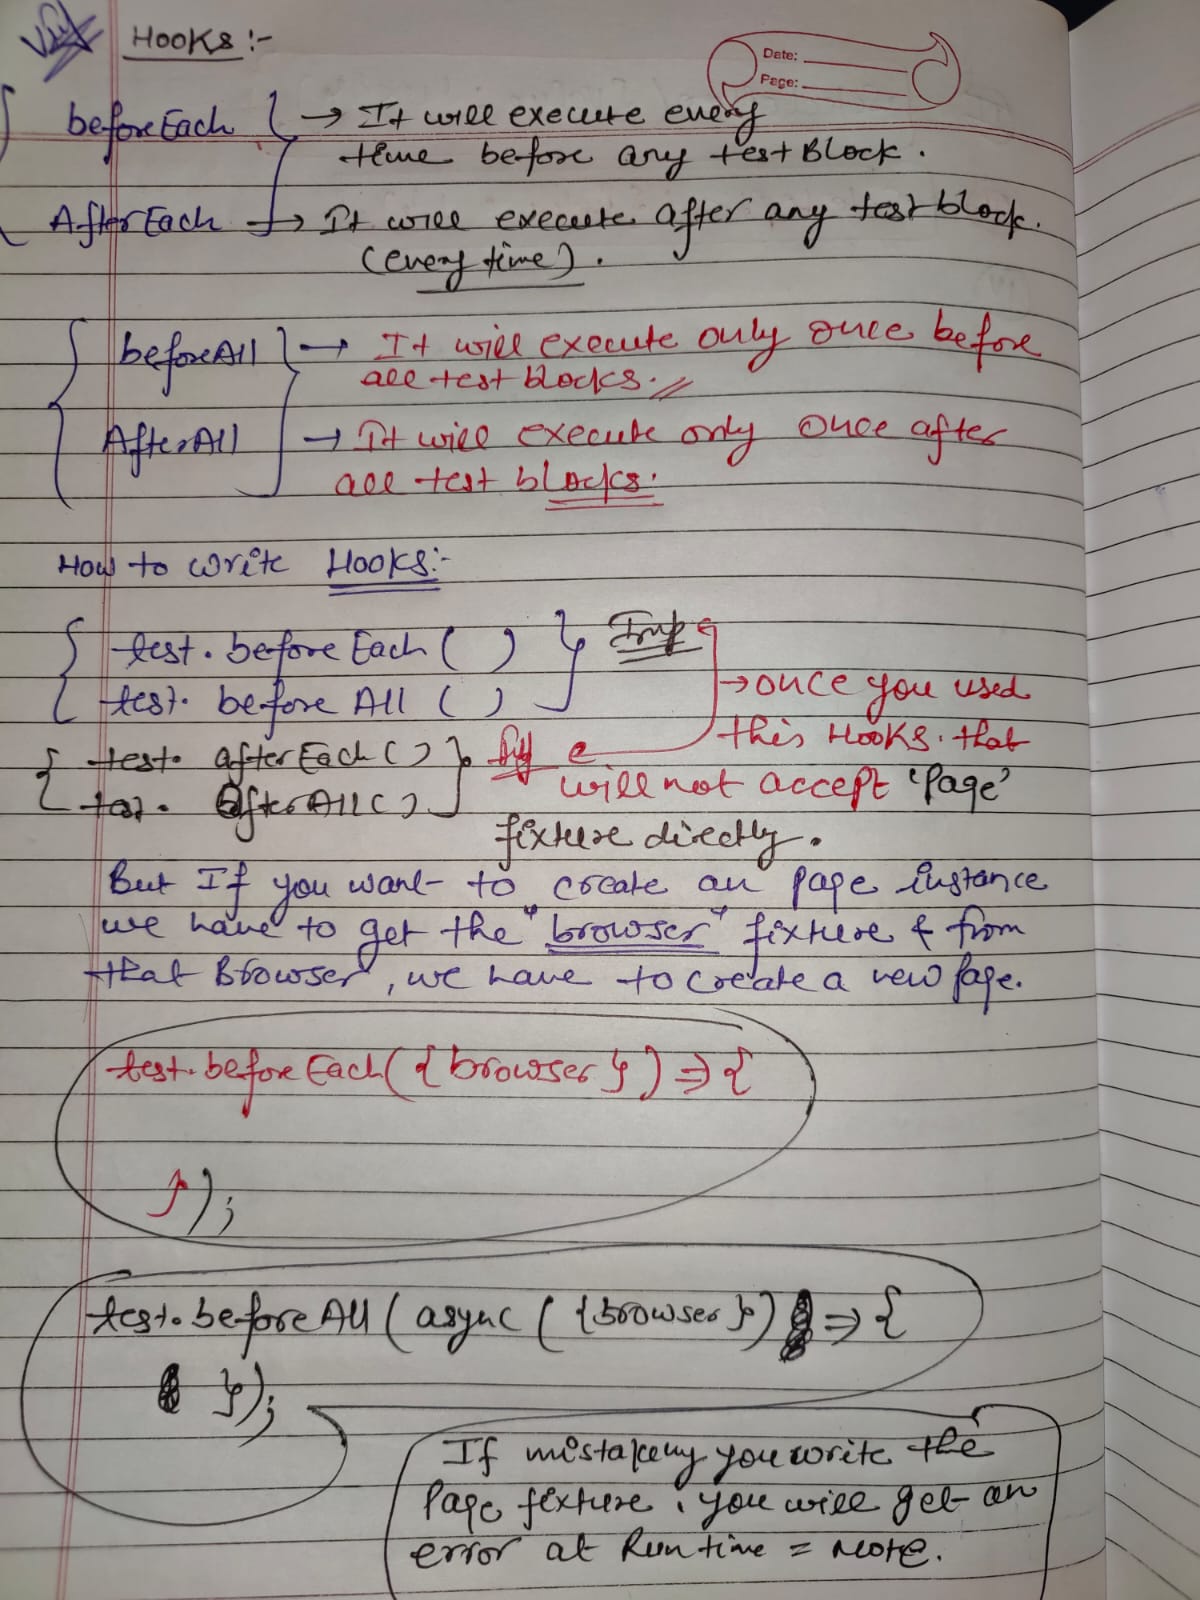 Hooks :-
Date:
Page:
beforeEach } → It will execute every
time before any testBlock.
AfterEach → It will execute after any test block.
(every time).
beforeAll } → It will execute only once before
all test blocks.
AfterAll → It will execute only once after
all test blocks.
How to write Hooks:-
{ test. beforeEach ( ) } Imp
test. before All ( )
→ once you used
this Hooks. that
{ test. afterEach ( ) }
will not accept 'Page'
test. AfterAll ( )
fixture directly.
But If you want to create an page instance
we have to get the "browser" fixture & from
that Browser, we have to create a new page.
test.beforeEach({browser}) => {
});
test.beforeAll (async ({browser}) => {
});
If mistakeny you write the
Page fixture, you will get an
error at Run time = Note.